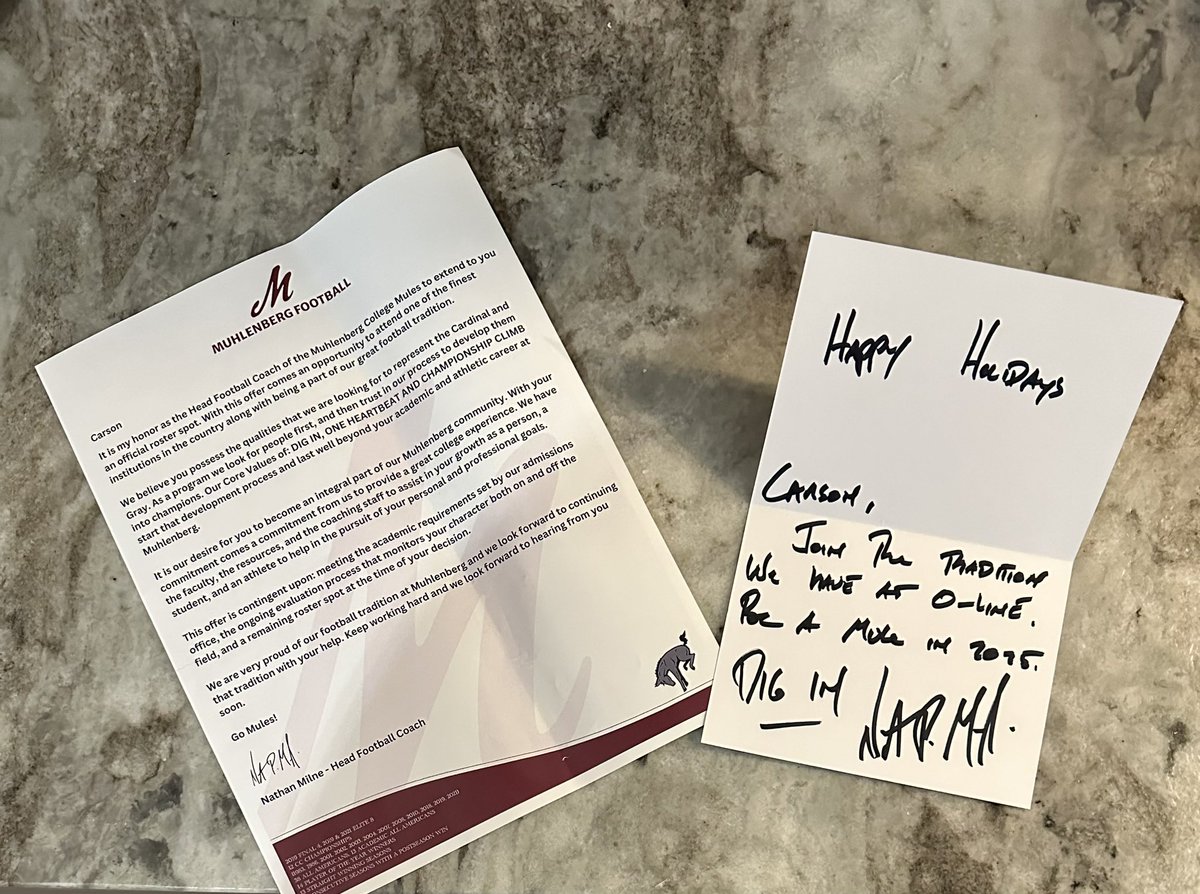 M
MUHLENBERG FOOTBALL
Carson
It is my honor as the Head Football Coach of the Muhlenberg College Mules to extend to you
an official roster spot. With this offer comes an opportunity to attend one of the finest
institutions in the country along with being a part of our great football tradition.
We believe you possess the qualities that we are looking for to represent the Cardinal and
Gray. As a program we look for people first, and then trust in our process to develop them
into champions. Our Core Values of: DIG IN, ONE HEARTBEAT AND CHAMPIONSHIP CLIMB
start that development process and last well beyond your academic and athletic career at
Muhlenberg.
It is our desire for you to become an integral part of our Muhlenberg community. With your
commitment comes a commitment from us to provide a great college experience. We have
the faculty, the resources, and the coaching staff to assist in your growth as a person, a
student, and an athlete to help in the pursuit of your personal and professional goals.
This offer is contingent upon: meeting the academic requirements set by our admissions
office, the ongoing evaluation process that monitors your character both on and off the
field, and a remaining roster spot at the time of your decision.
We are very proud of our football tradition at Muhlenberg and we look forward to continuing
that tradition with your help. Keep working hard and we look forward to hearing from you
soon.
Go Mules!
Nathan Milne - Head Football Coach
2019 FINAL 4, 2019 & 2021 ELITE 8
12 CC CHAMPIONSHIPS
38 ALL AMERICANS 13 ACADEMIC ALL AMERICANS
14 PLAYER OF THE YEAR WINNERS
STRAIGHT WINNING SEASONS
CONSECUTIVE SEASONS WITH A POSTSEASON WIN
HAPPY HOLIDAYS
CARSON,
JOIN THE TRADITION
WE HAVE AT O-LINE.
A MULE IN 2025.
DIG IN